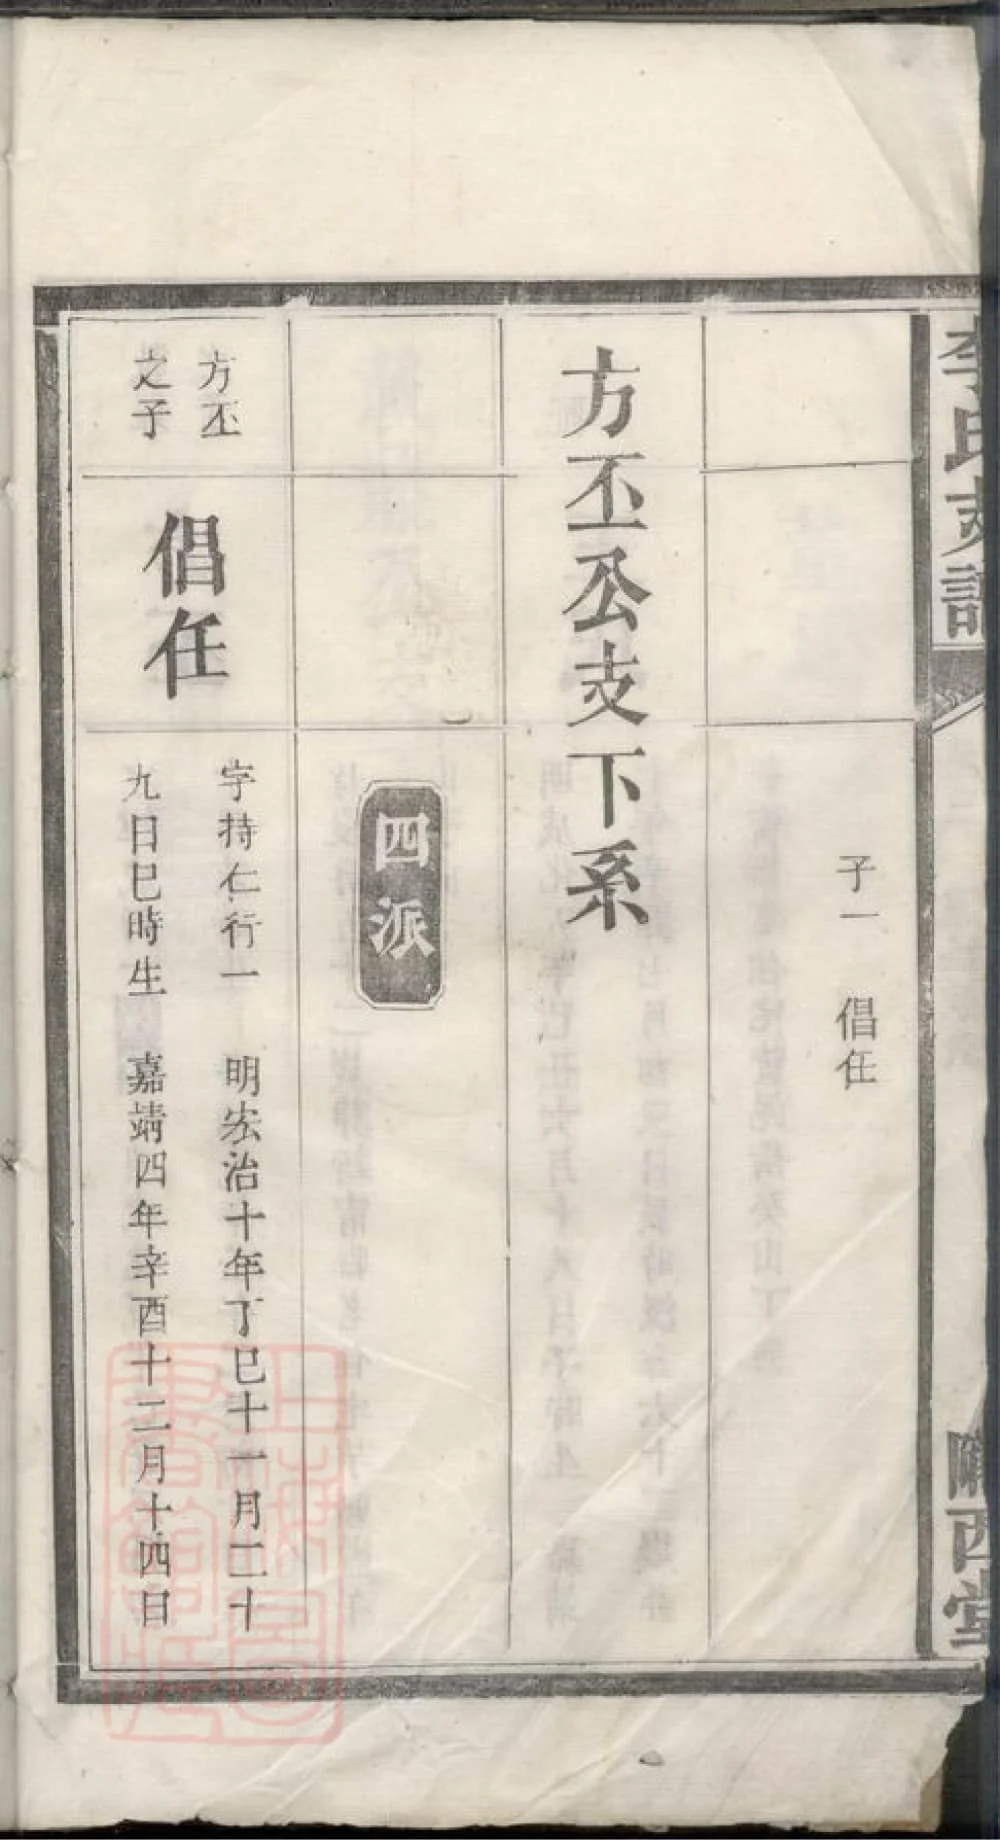 李氏支譜
隴西堂
子一　倡任
方丕公支下系
四派
方丕
之子
倡任
字持仁行一　明宏治十年丁巳十一月二十
九日巳時生　嘉靖四年辛酉十二月十四日
上海圖書館藏